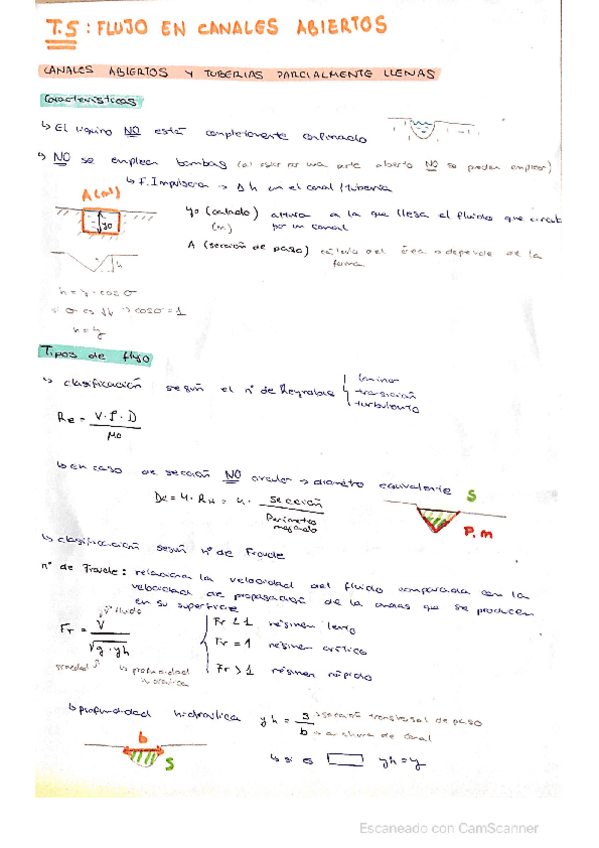 T.5: FLUJO EN CANALES ABIERTOS
CANALES ABIERTOS Y TUBERIAS PARCIALMENTE LLENAS
Características
↳ El líquido NO está completamente confinado
↳ NO se emplean bombas (al estar por una parte abierto NO se pueden emplear)
↳ F. Impulsora → Δh en el canal / tubería
A (m²)
yo
yo (calado) altura a la que llega el fluido que circula
(m) por un canal
A (sección de paso) cálculo del área → depende de la
forma
h
h = y · cos σ
si σ es ↓↓ → cos σ = 1
h = y
Tipos de flujo
↳ clasificación según el nº de Reynolds
laminar
transición
turbulento
Re = V · ρ · D / μ
↳ en caso de sección NO circular → diámetro equivalente
De = 4 · RH = 4 · sección / Perímetro mojado
S
P.m
↳ clasificación según nº de Froude
nº de Froude: relaciona la velocidad del fluido comparada con la
velocidad de propagación de la ondas que se producen
en su superficie
Fr = V / √g · yh
v fluido
gravedad
↳ profundidad hidráulica
Fr < 1 régimen lento
Fr = 1 régimen crítico
Fr > 1 régimen rápido
↳ profundidad hidráulica yh = S / b
→ sección transversal de paso
→ anchura de canal
b
S
↳ si es yh = y
Escaneado con CamScanner